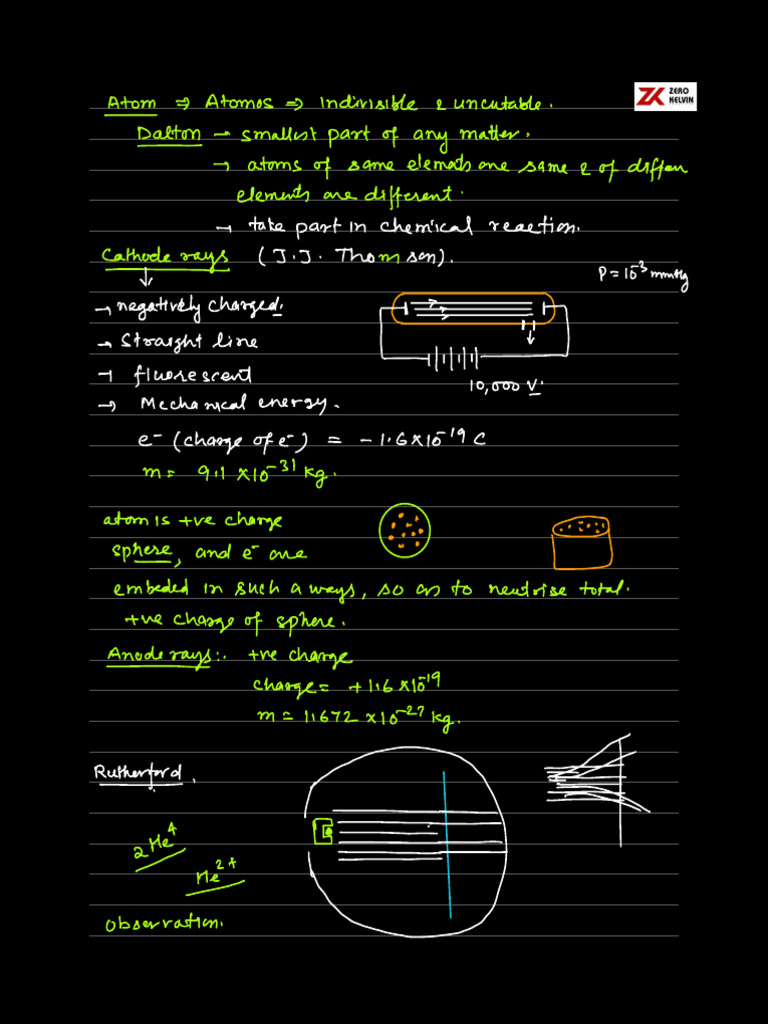 Atom ⇒ Atomos ⇒ Indivisible & uncutable.
ZK ZERO KELVIN
Dalton → smallest part of any matter.
→ atoms of same elemats are same & of differn
elements are different.
→ take part in chemical reaction.
Cathode rays (J.J. Thomson).
P = 10⁻³ mmHg
→ negatively charged.
→ Straight line
→ fluorescent
10,000 V.
→ Mechanical energy.
e⁻ (charge of e⁻) = -1.6×10⁻¹⁹ C
m = 9.1 × 10⁻³¹ kg.
atom is +ve charge
sphere, and e⁻ are
embeded in such a ways, so as to neutrise total.
+ve charge of sphere.
Anode rays:. +ve charge
charge = +1.6×10⁻¹⁹
m = 1.672 ×10⁻²⁷ kg.
Rutherford.
₂He⁴
He²⁺
Observation.